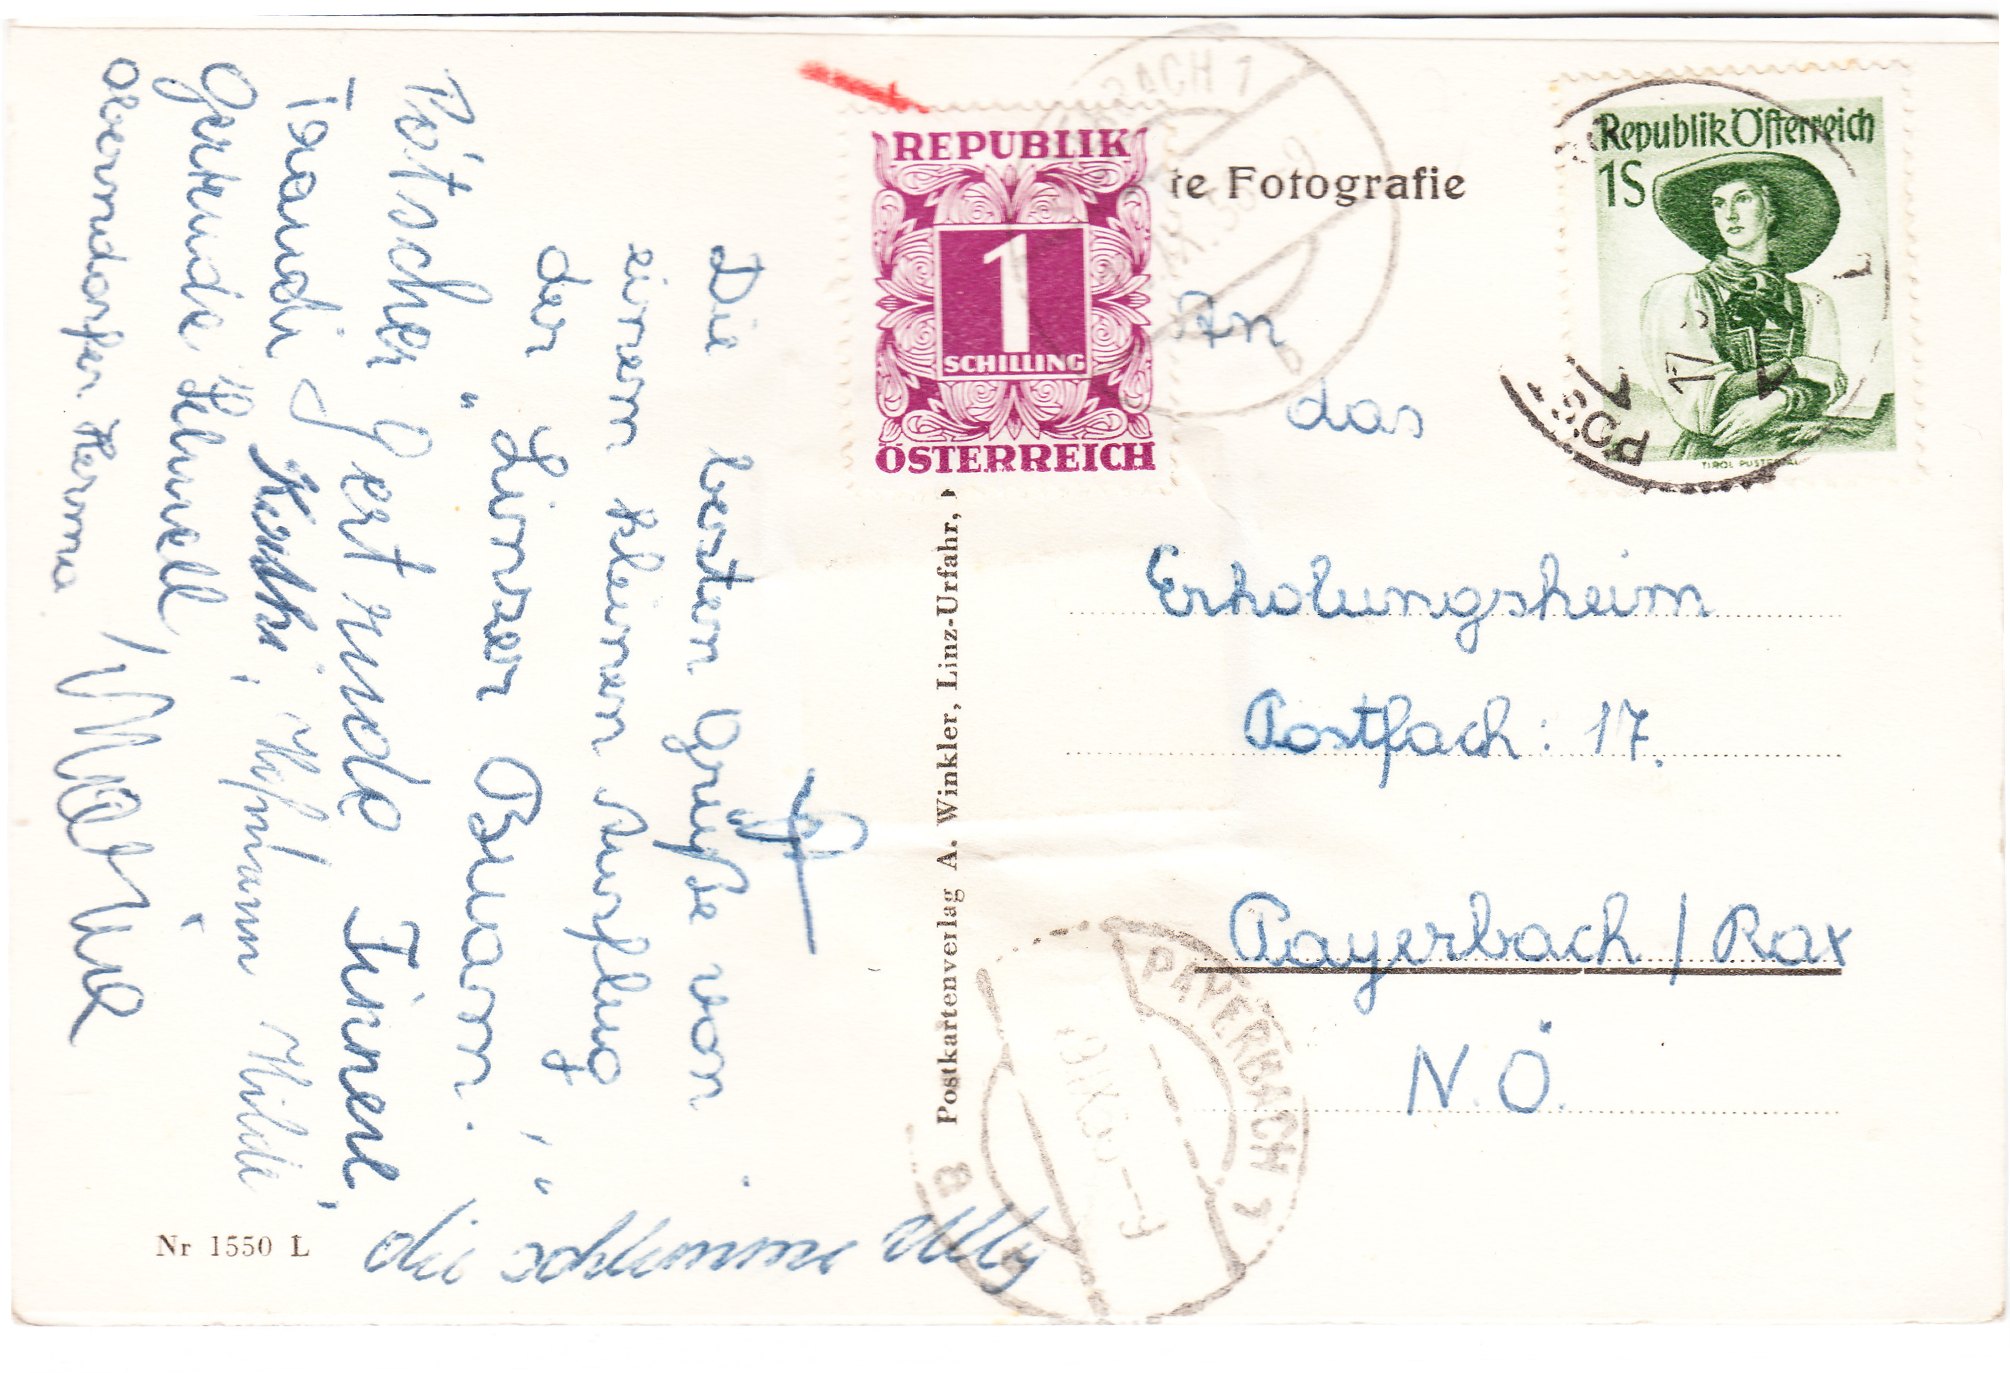 Die besten Grüße von
einem kleinen Ausflug
der
" Linzer Buam. "
Pötscher Gertrude
Traudi
Finnerl,
Gertrude Schnell,
Hofmann Hilde
Oberndorfer Herma
die schlimme Elly
Nr 1550 L
Postkartenverlag A. Winkler, Linz-Urfahr,
REPUBLIK
1
SCHILLING
ÖSTERREICH
te Fotografie
Republik Österreich
1S
TIROL PUSTERTAL
POST
17
An
das
Erholungsheim
Postfach: 17.
Payerbach / Rax
N.Ö.
PAYERBACH 1
BACH 1